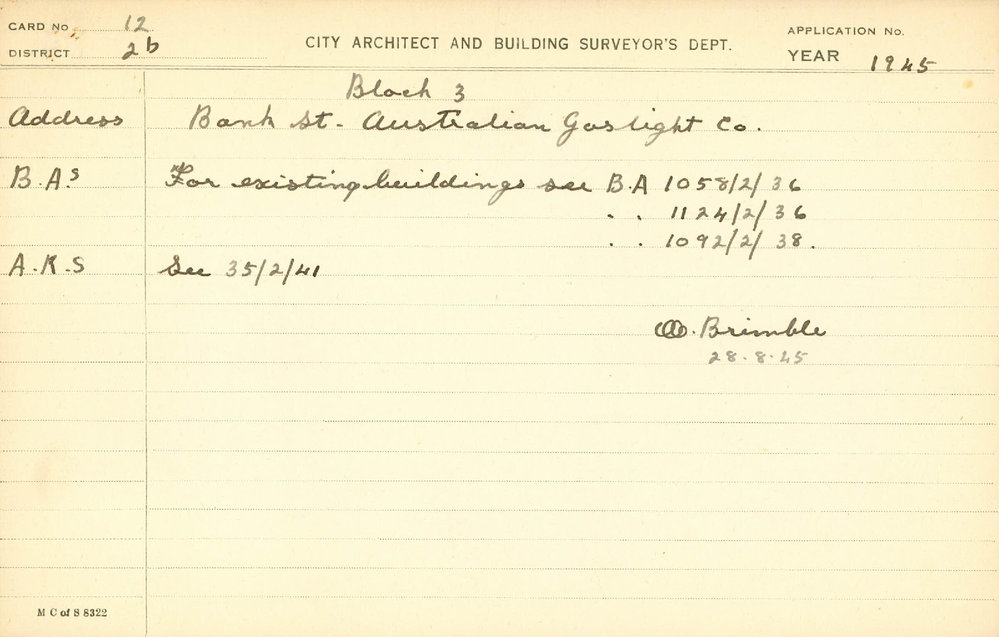 CARD No 12
DISTRICT 2b
CITY ARCHITECT AND BUILDING SURVEYOR'S DEPT.
APPLICATION No.
YEAR 1945
Block 3
Address Bank St - Australian Gaslight Co.
B.As For existing buildings see B.A 1058/2/36
. . 1124/2/36
. . 1092/2/38.
A.K.S See 35/2/41
Brimble
28.8.45
M C of S 8322